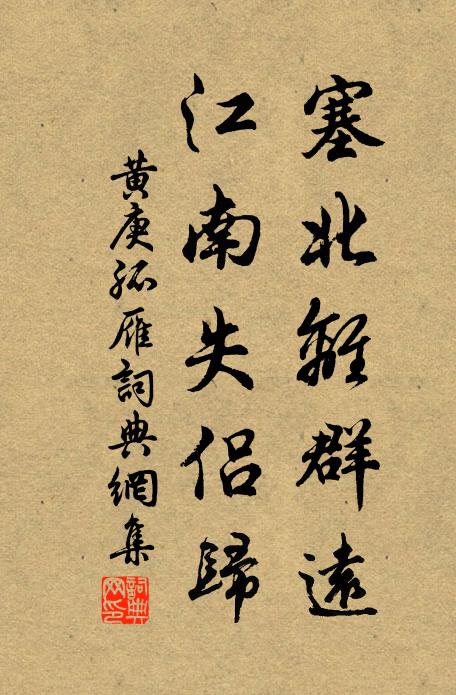 塞北離群遠
江南失侶歸
黃庚孤雁詞典網集
詞典網印